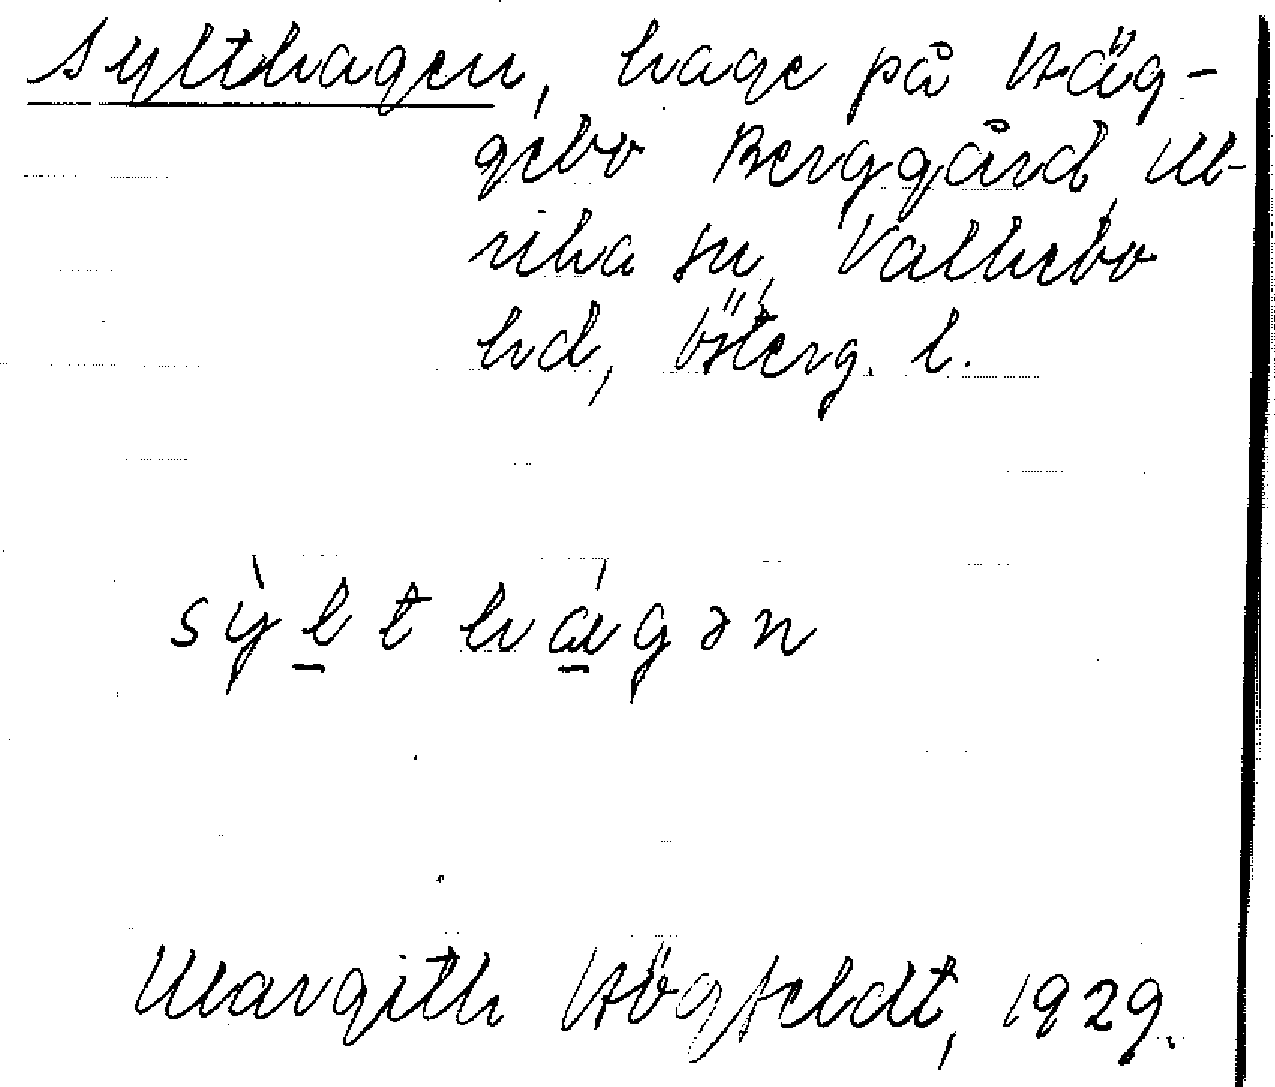 Sylthagen, hage på Häg-
gebo Berggård, Ul-
rika sn, Valkebo
hd, Österg. l.
sỳl̲t há̲gən
Margith Högfeldt, 1929.